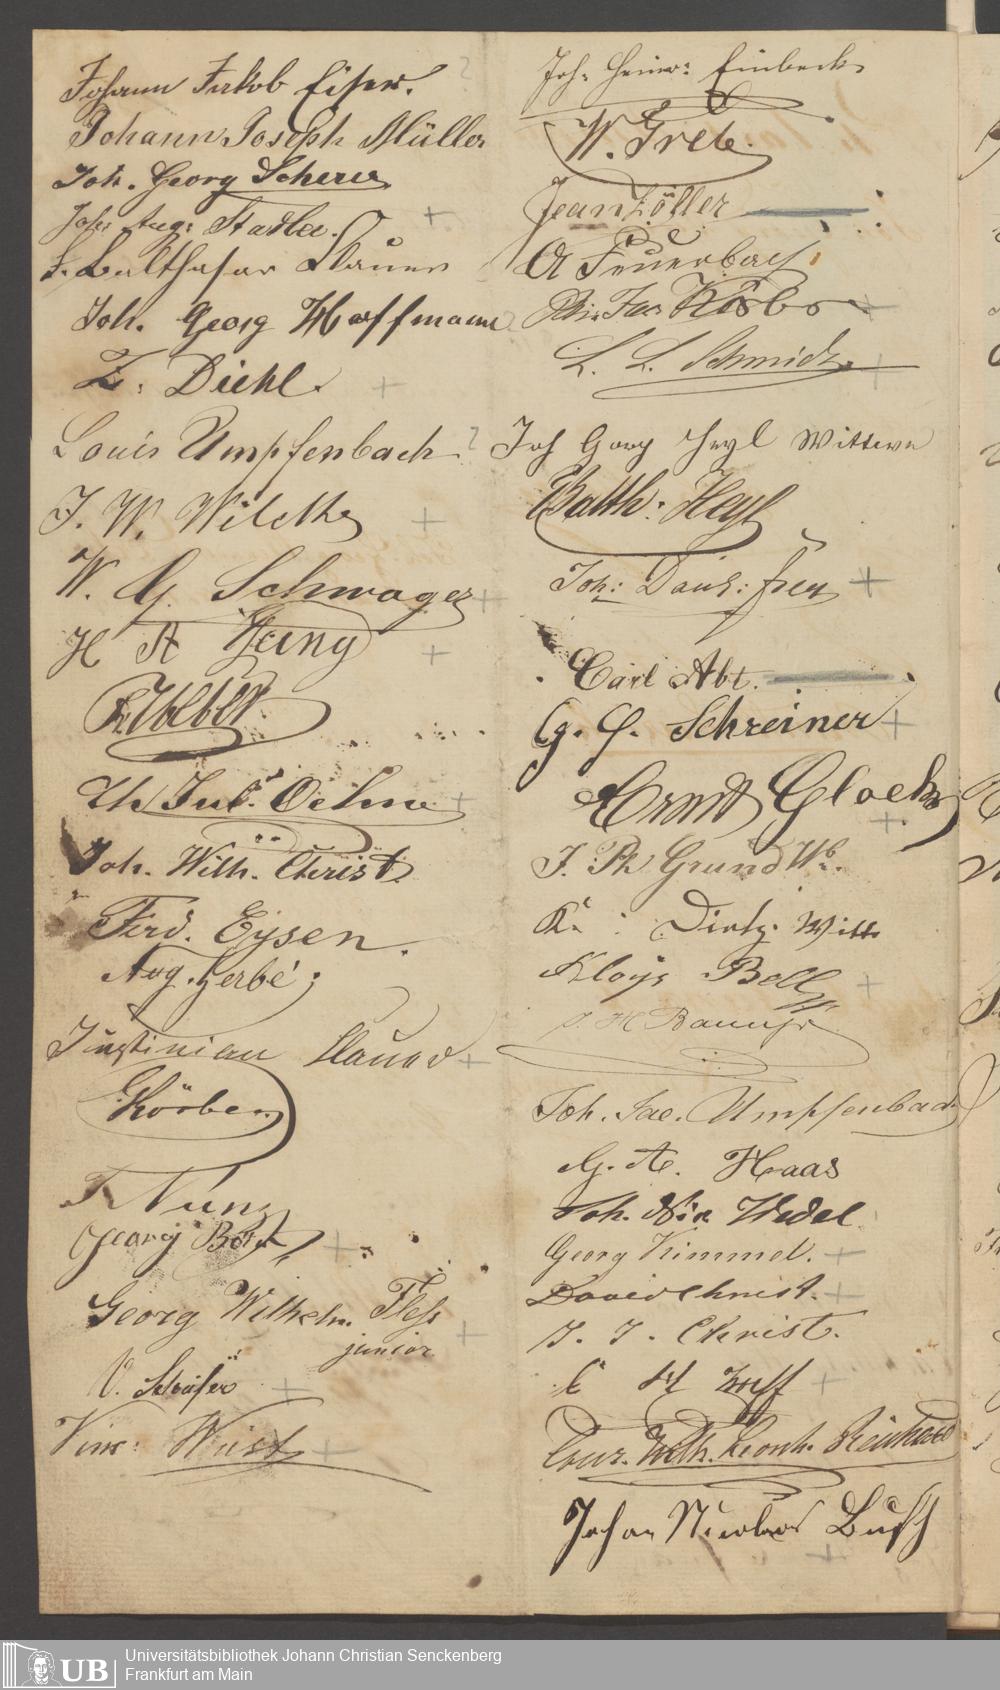 Johann Jakob Eifer.
Johann Joseph Müller
Joh. Georg Scherer
Joh: Aug: Stadler.
F. Balthasar Hauer
Joh. Georg Hoffmann
Z. Diehl.
Louis Umpfenbach
J. W. Wileke
W. G. Schwager
H A Jung
Weber.
Th Jul. Oehme
Joh. Wilh. Christ.
Ferd. Eysen.
Aug. Gerbé;
Justinian Hauer
Körber
F Nunz
Georg
Georg Wilhelm Fleß
junior
V. Schäfer
Wüst
Joh: Heinr: Einbeck
W. Grele.
Jean Löller
A Feuerbach
Jac Körber
L. L. Schmidt
Joh Georg Heyl Wittwe
Balth: Heyl
Joh: Dank: frey
Carl Abt.
G. G. Schreiner
Arndt Glock
J. Ph Grund Wb.
K. Dietz. Witt
Aloys Bell
J. H
Joh. Jac. Umpfenbach
G. A. Haas
Joh. Nic Wedel
Georg Kimmel.
David Christ.
J. J. Christ.
C H
Conr. Wilh. Leonh. Reinhard
Johan Nicolaus Busch
Universitätsbibliothek Johann Christian Senckenberg
UB Frankfurt am Main